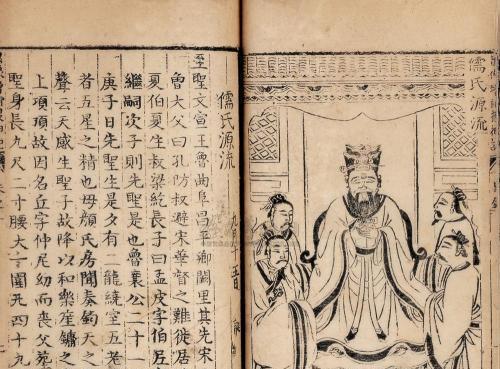 儒氏源流
儒氏源流
至聖文宣王魯曲阜昌平鄉闕里其先宋
魯大父曰孔防叔避宋華督之難徙居
夏伯夏生叔梁紇長子曰孟皮字伯尼
繼嗣次子則先聖是也魯襄公二十一
庚子日先聖生是夕有二龍繞室五老
者五星之精也母顏氏房聞奏鈞天之
聲云天感生聖子故降以和樂笙鏞之
上項頂故因名丘字仲尼幼而喪父葬
聖身長九尺二寸腰大十圍凡四十九